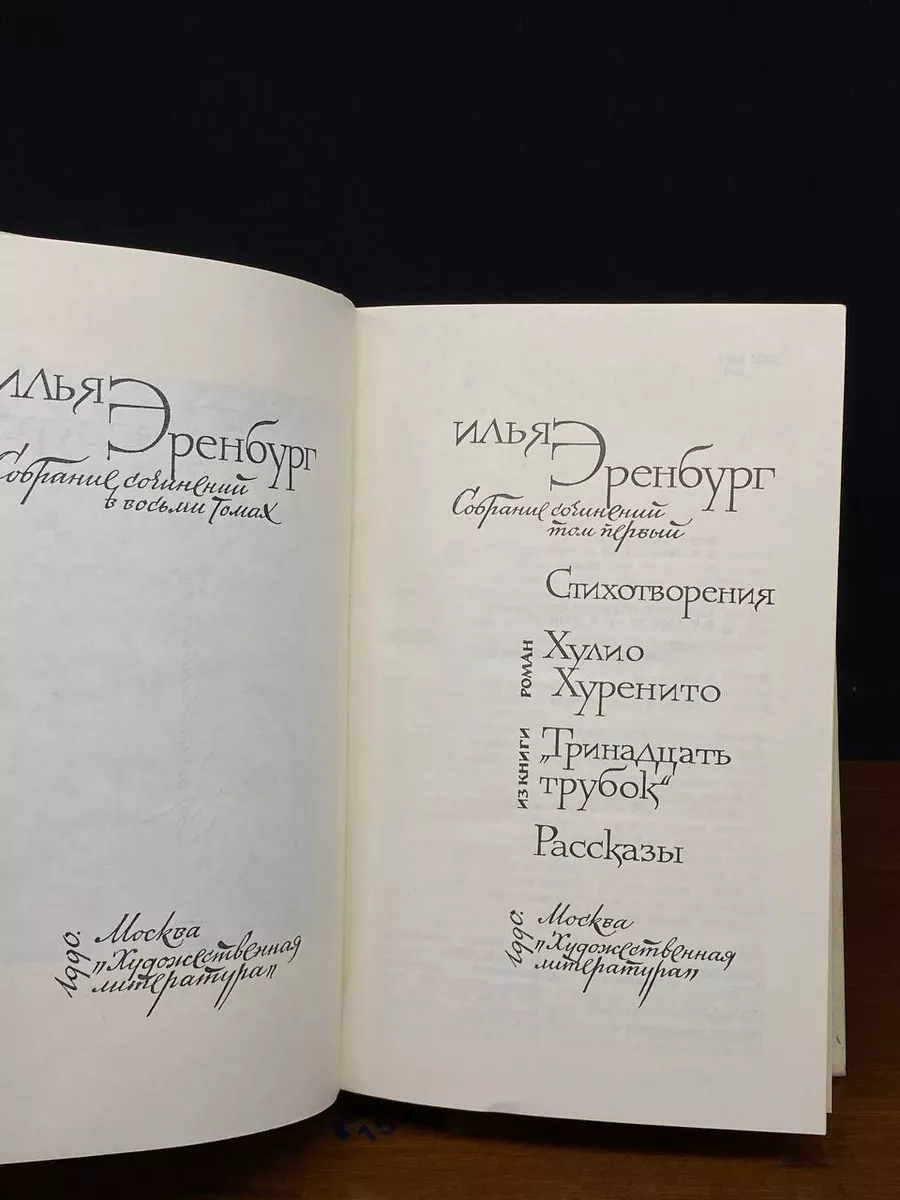 илья
Эренбург
Собрание сочинений
в восьми томах
1990.
Москва
„Художественная
литература“
илья
Эренбург
Собрание сочинений
том первый
Стихотворения
роман
Хулио
Хуренито
из книги
„Тринадцать
трубок“
Рассказы
1990.
Москва
„Художественная
литература“